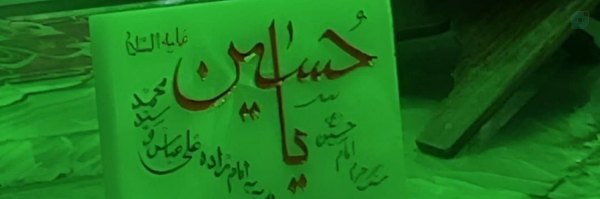 یا حسین
علیه السلام
محمد
سید
علی عباس و
امام زاده
حسین
امام
حرم